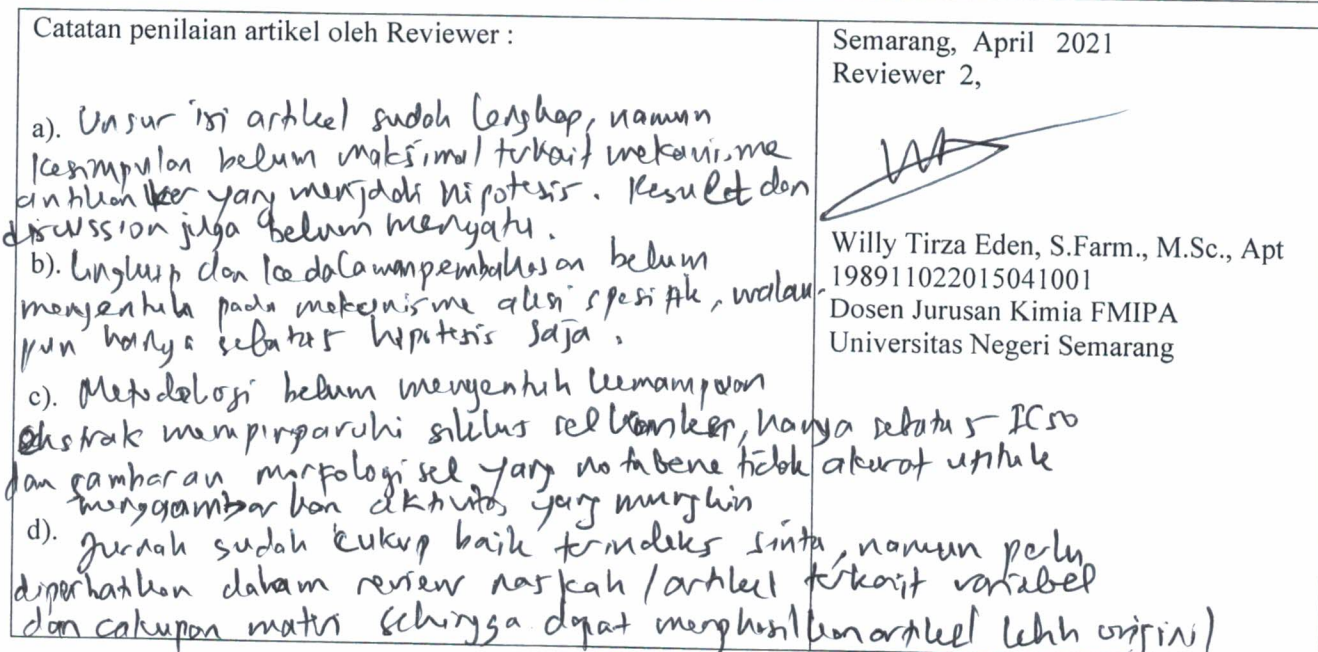 Catatan penilaian artikel oleh Reviewer :
a). Unsur isi artikel sudah lengkap, namun
kesimpulan belum maksimal terkait mekanisme
antikanker yang menjadi hipotesis. Result dan
discussion juga belum menyatu.
b). Lingkup dan kedalaman pembahasan belum
menyentuh pada mekanisme aksi spesifik, walau-
pun hanya sebatas hipotesis saja.
c). Metodologi belum menyentuh kemampuan
ekstrak mempengaruhi siklus sel kanker, hanya sebatas IC50
dan gambaran morfologi sel yang notabene tidak akurat untuk
menggambarkan aktivitas yang mungkin
d). Jurnal sudah cukup baik terindeks sinta, namun perlu
diperhatikan dalam review naskah/artikel terkait variabel
dan cakupan materi sehingga dapat menghasilkan artikel lebih original
Semarang, April 2021
Reviewer 2,
Willy Tirza Eden, S.Farm., M.Sc., Apt
198911022015041001
Dosen Jurusan Kimia FMIPA
Universitas Negeri Semarang